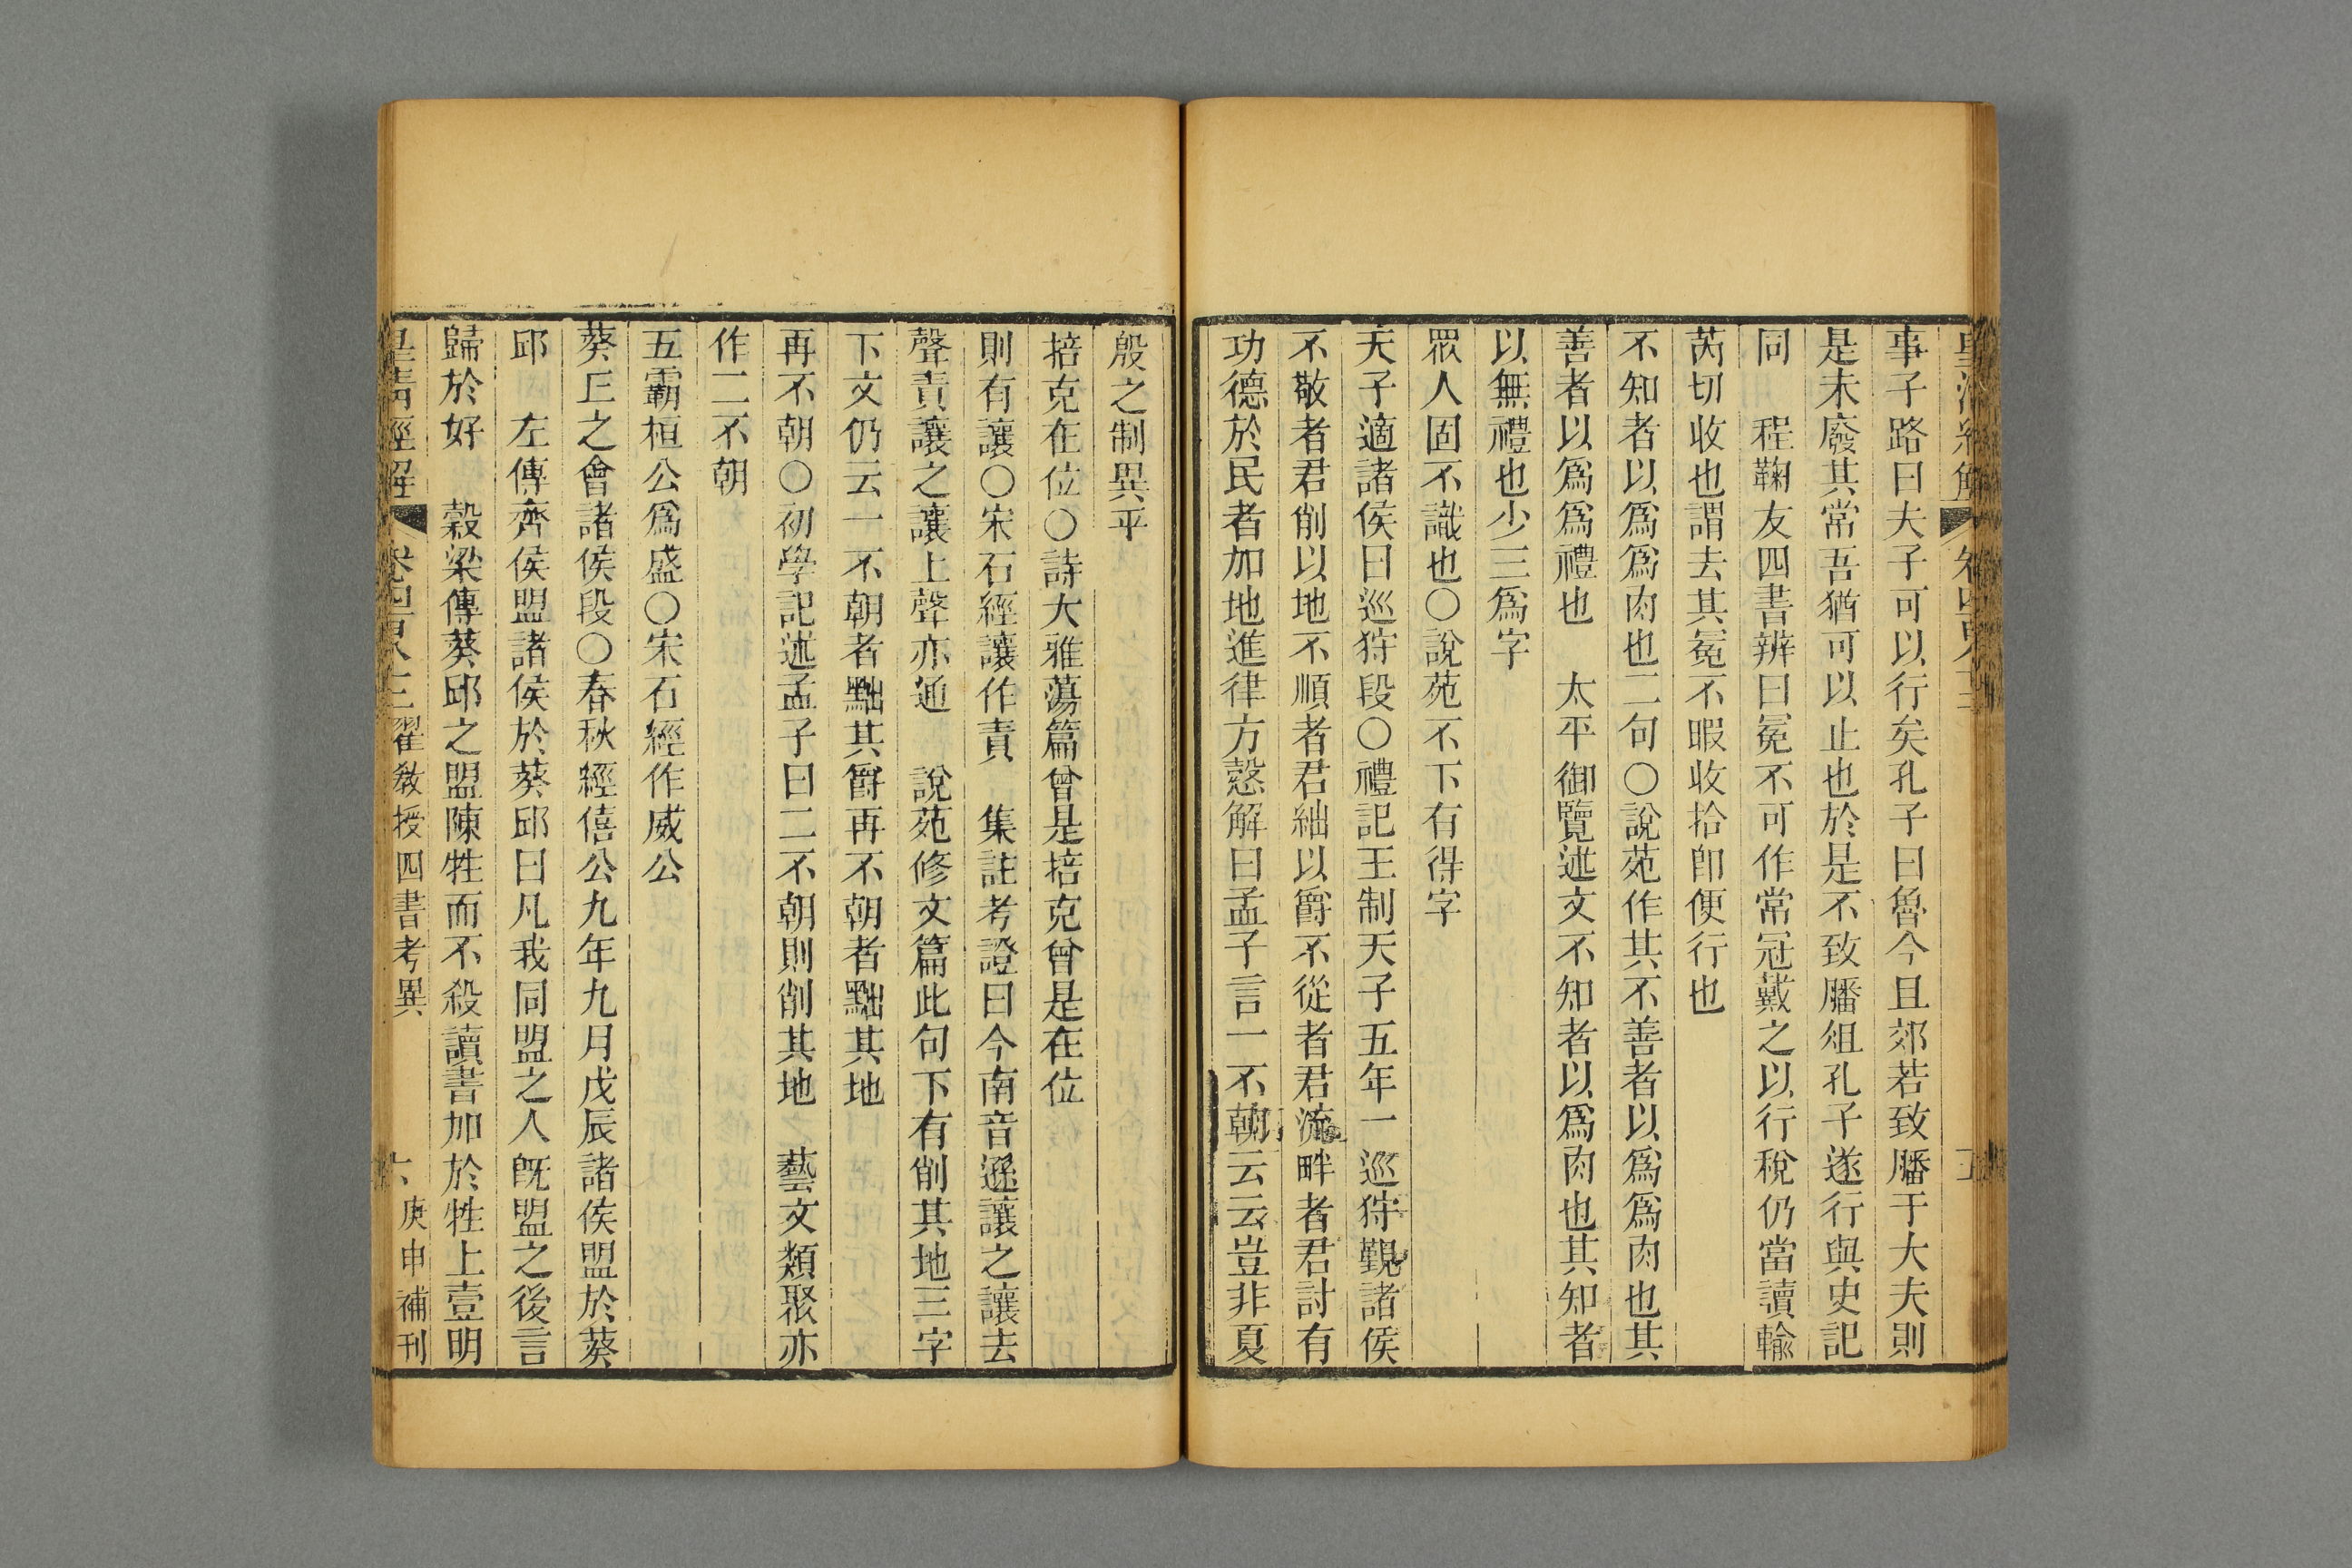 事子路曰夫子可以行矣孔子曰魯今且郊若致膰于大夫則
是未廢其常吾猶可以止也於是不致膰俎孔子遂行與史記
同　程鞠友四書辨曰冕不可作常冠戴之以行稅仍當讀輸
芮切收也謂去其冕不暇收拾卽便行也
不知者以爲爲肉也二句○說苑作其不善者以爲爲肉也其
善者以爲爲禮也　太平御覽述文不知者以爲肉也其知者
以無禮也少三爲字
眾人固不識也○說苑不下有得字
天子適諸侯曰巡狩段○禮記王制天子五年一巡狩覲諸侯
不敬者君削以地不順者君絀以爵不從者君流畔者君討有
功德於民者加地進律方慤解曰孟子言一不朝云云豈非夏
殷之制異乎
掊克在位○詩大雅蕩篇曾是掊克曾是在位
則有讓○宋石經讓作責　集註考證曰今南音遜讓之讓去
聲責讓之讓上聲亦通　說苑修文篇此句下有削其地三字
下文仍云一不朝者黜其爵再不朝者黜其地
再不朝○初學記述孟子曰二不朝則削其地　藝文類聚亦
作二不朝
五霸桓公爲盛○宋石經作威公
葵丘之會諸侯段○春秋經僖公九年九月戊辰諸侯盟於葵
邱　左傳齊侯盟諸侯於葵邱曰凡我同盟之人旣盟之後言
歸於好　穀梁傳葵邱之盟陳牲而不殺讀書加於牲上壹明
皇清經解　卷四百八十三翟教授四書考異　六　庚申補刊